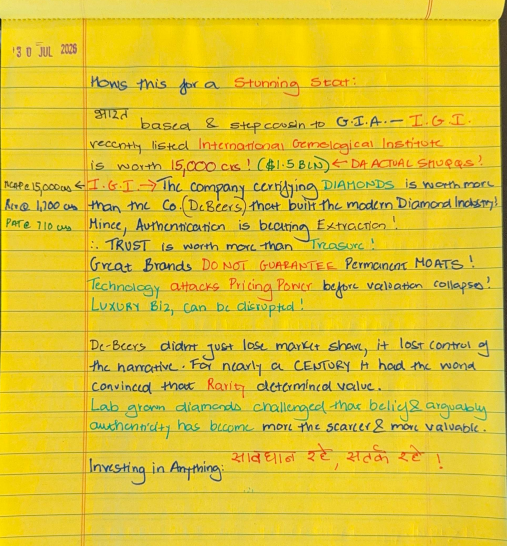 30 JUL 2026
Hows this for a Stunning Stat:
भारत based & stepcousin to G.I.A. — I.G.I.
recently listed International Gemological Institute
is worth 15,000 crs! ($1.5 BLN) ← DA ACTUAL
MCAP@ 15,000 crs ← I.G.I. → The company certifying DIAMONDS is worth more
Rev@ 1,700 crs than the Co. (DeBeers) that built the modern Diamond Industry!
PAT@ 710 crs Hince, Authentication is beating Extraction!
∴ TRUST is worth more than Treasure!
Great Brands DO NOT GUARANTEE Permanent MOATS!
Technology attacks Pricing Power before valuation collapses!
LUXURY Biz, can be disrupted!
De-Beers didnt just lose market share, it lost control of
the narrative. For nearly a CENTURY it had the world
convinced that Rarity determined value.
Lab grown diamonds challenged that belief & arguably
authenticity has become more the scarcer & more valuable.
Investing in Anything: सावधान रहे, सतर्क रहे!